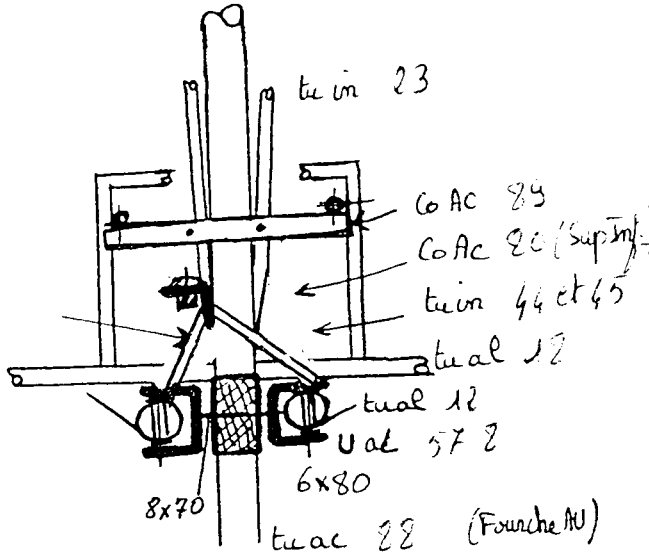 tu in 23
CoAC 89
CoAc 20 (SupInf-
tuin 44 et 45
tual 12
tual 12
Uac 57 2
6x80
8x70
tuac 22 (Fourche AV)